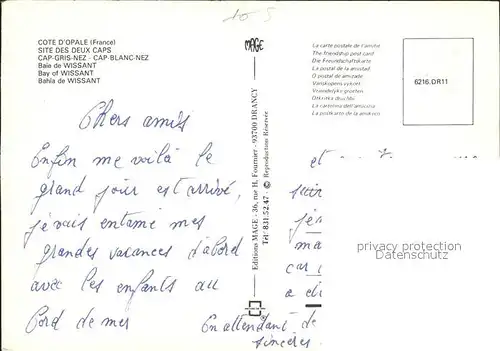 10 S
COTE D'OPALE (France)
SITE DES DEUX CAPS
CAP-GRIS-NEZ - CAP-BLANC-NEZ
Baie de WISSANT
Bay of WISSANT
Bahia de WISSANT
MAGE
La carte postale de l'amitié
The friendship post card
Die Freundschaftskarte
La postal de la amistad
O postal de amizade
Vanskapens vykort
Vriendelijke groeten
La cartolina dell'amicizia
6216.DR11
Edition MAGE - 36, rue H. Fournier - 93700 DRANCY
Tél : 831.52.47 - © Reproduction Réservée
Chers amis
Enfin me voilà le
grand jour est arrivé,
je vais entamé mes
grandes vacances d'abord
avec les enfants au
bord de mer
et
ma
car
a
En attendant de
sincères
privacy protection
Datenschutz